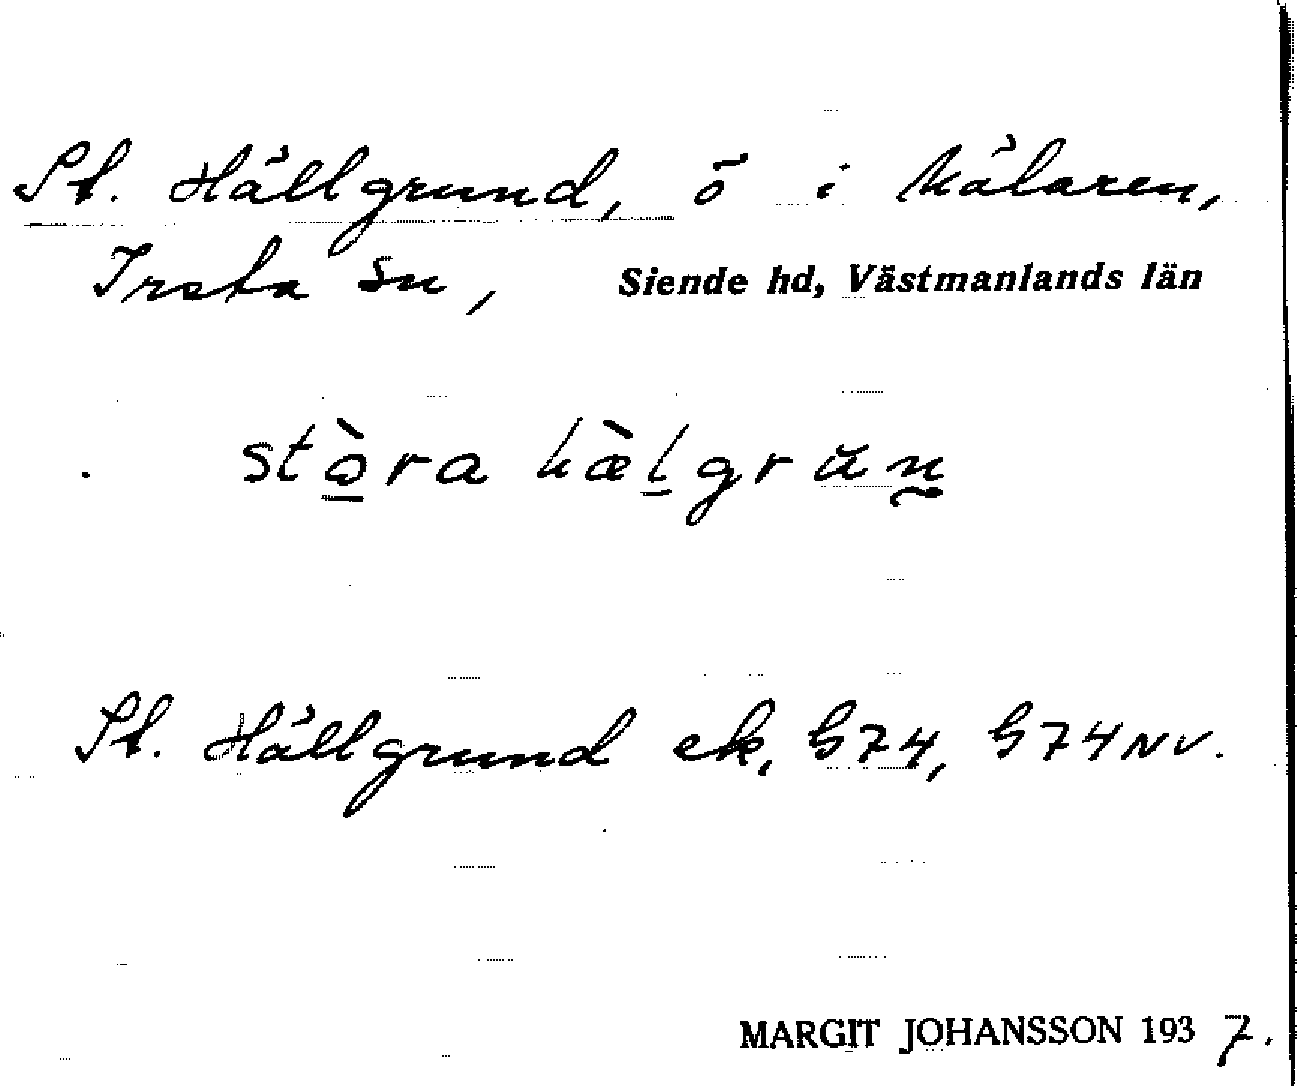 St. Hällgrund, ö i Mälaren,
Irsta sn, Siende hd, Västmanlands län
stòra hæ̀lgrun
St. Hällgrund ek, G74, G74NV.
MARGIT JOHANSSON 1937.